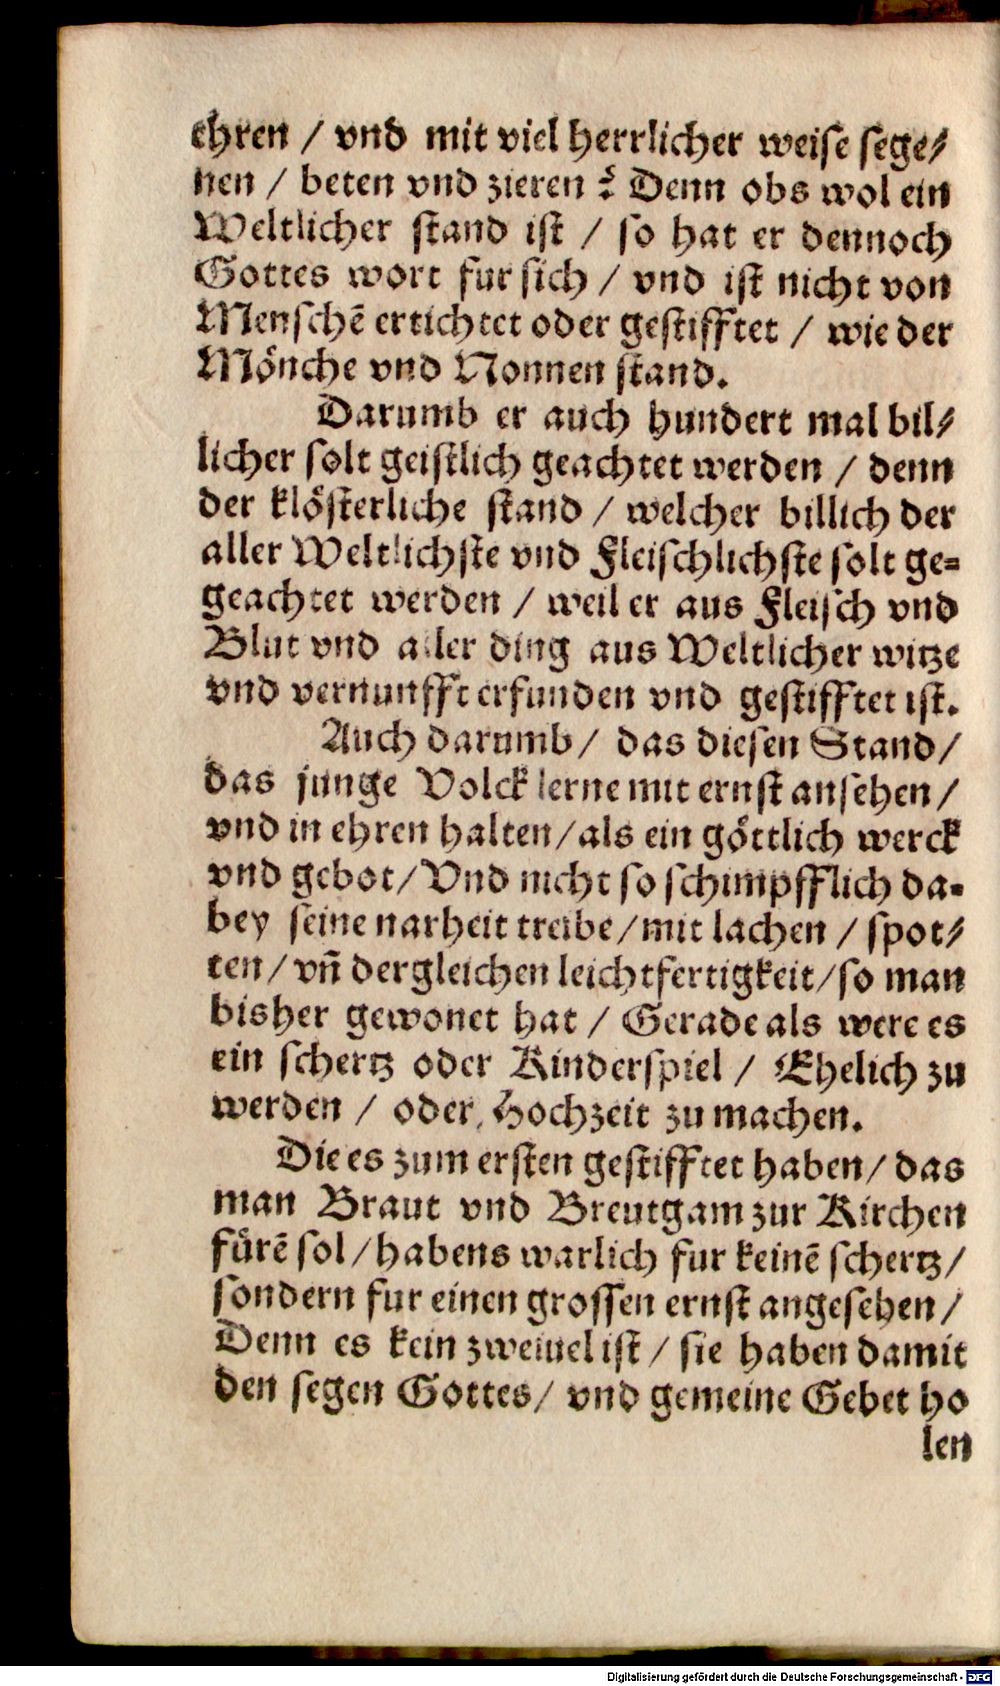 ehren / vnd mit viel herrlicher weise sege⸗
nen / beten vnd zieren ? Denn obs wol ein
Weltlicher stand ist / so hat er dennoch
Gottes wort fur sich / vnd ist nicht von
Menschē ertichtet oder gestifftet / wie der
Mönche vnd Nonnen stand.
Darumb er auch hundert mal bil⸗
licher solt geistlich geachtet werden / denn
der klösterliche stand / welcher billich der
aller Weltlichste vnd Fleischlichste solt ge⸗
geachtet werden / weil er aus Fleisch vnd
Blut vnd aller ding aus Weltlicher witze
vnd vernunfft erfunden vnd gestifftet ist.
Auch darumb / das diesen Stand /
das junge Volck lerne mit ernst ansehen /
vnd in ehren halten / als ein göttlich werck
vnd gebot / Vnd nicht so schimpfflich da⸗
bey seine narheit treibe / mit lachen / spot⸗
ten / vn̄ dergleichen leichtfertigkeit / so man
bisher gewonet hat / Gerade als were es
ein schertz oder Kinderspiel / Ehelich zu
werden / oder Hochzeit zu machen.
Die es zum ersten gestifftet haben / das
man Braut vnd Breutgam zur Kirchen
fürē sol / habens warlich fur keinē schertz /
sondern fur einen grossen ernst angesehen /
Denn es kein zweiuel ist / sie haben damit
den segen Gottes / vnd gemeine Gebet ho
len
Digitalisierung gefördert durch die Deutsche Forschungsgemeinschaft - DFG